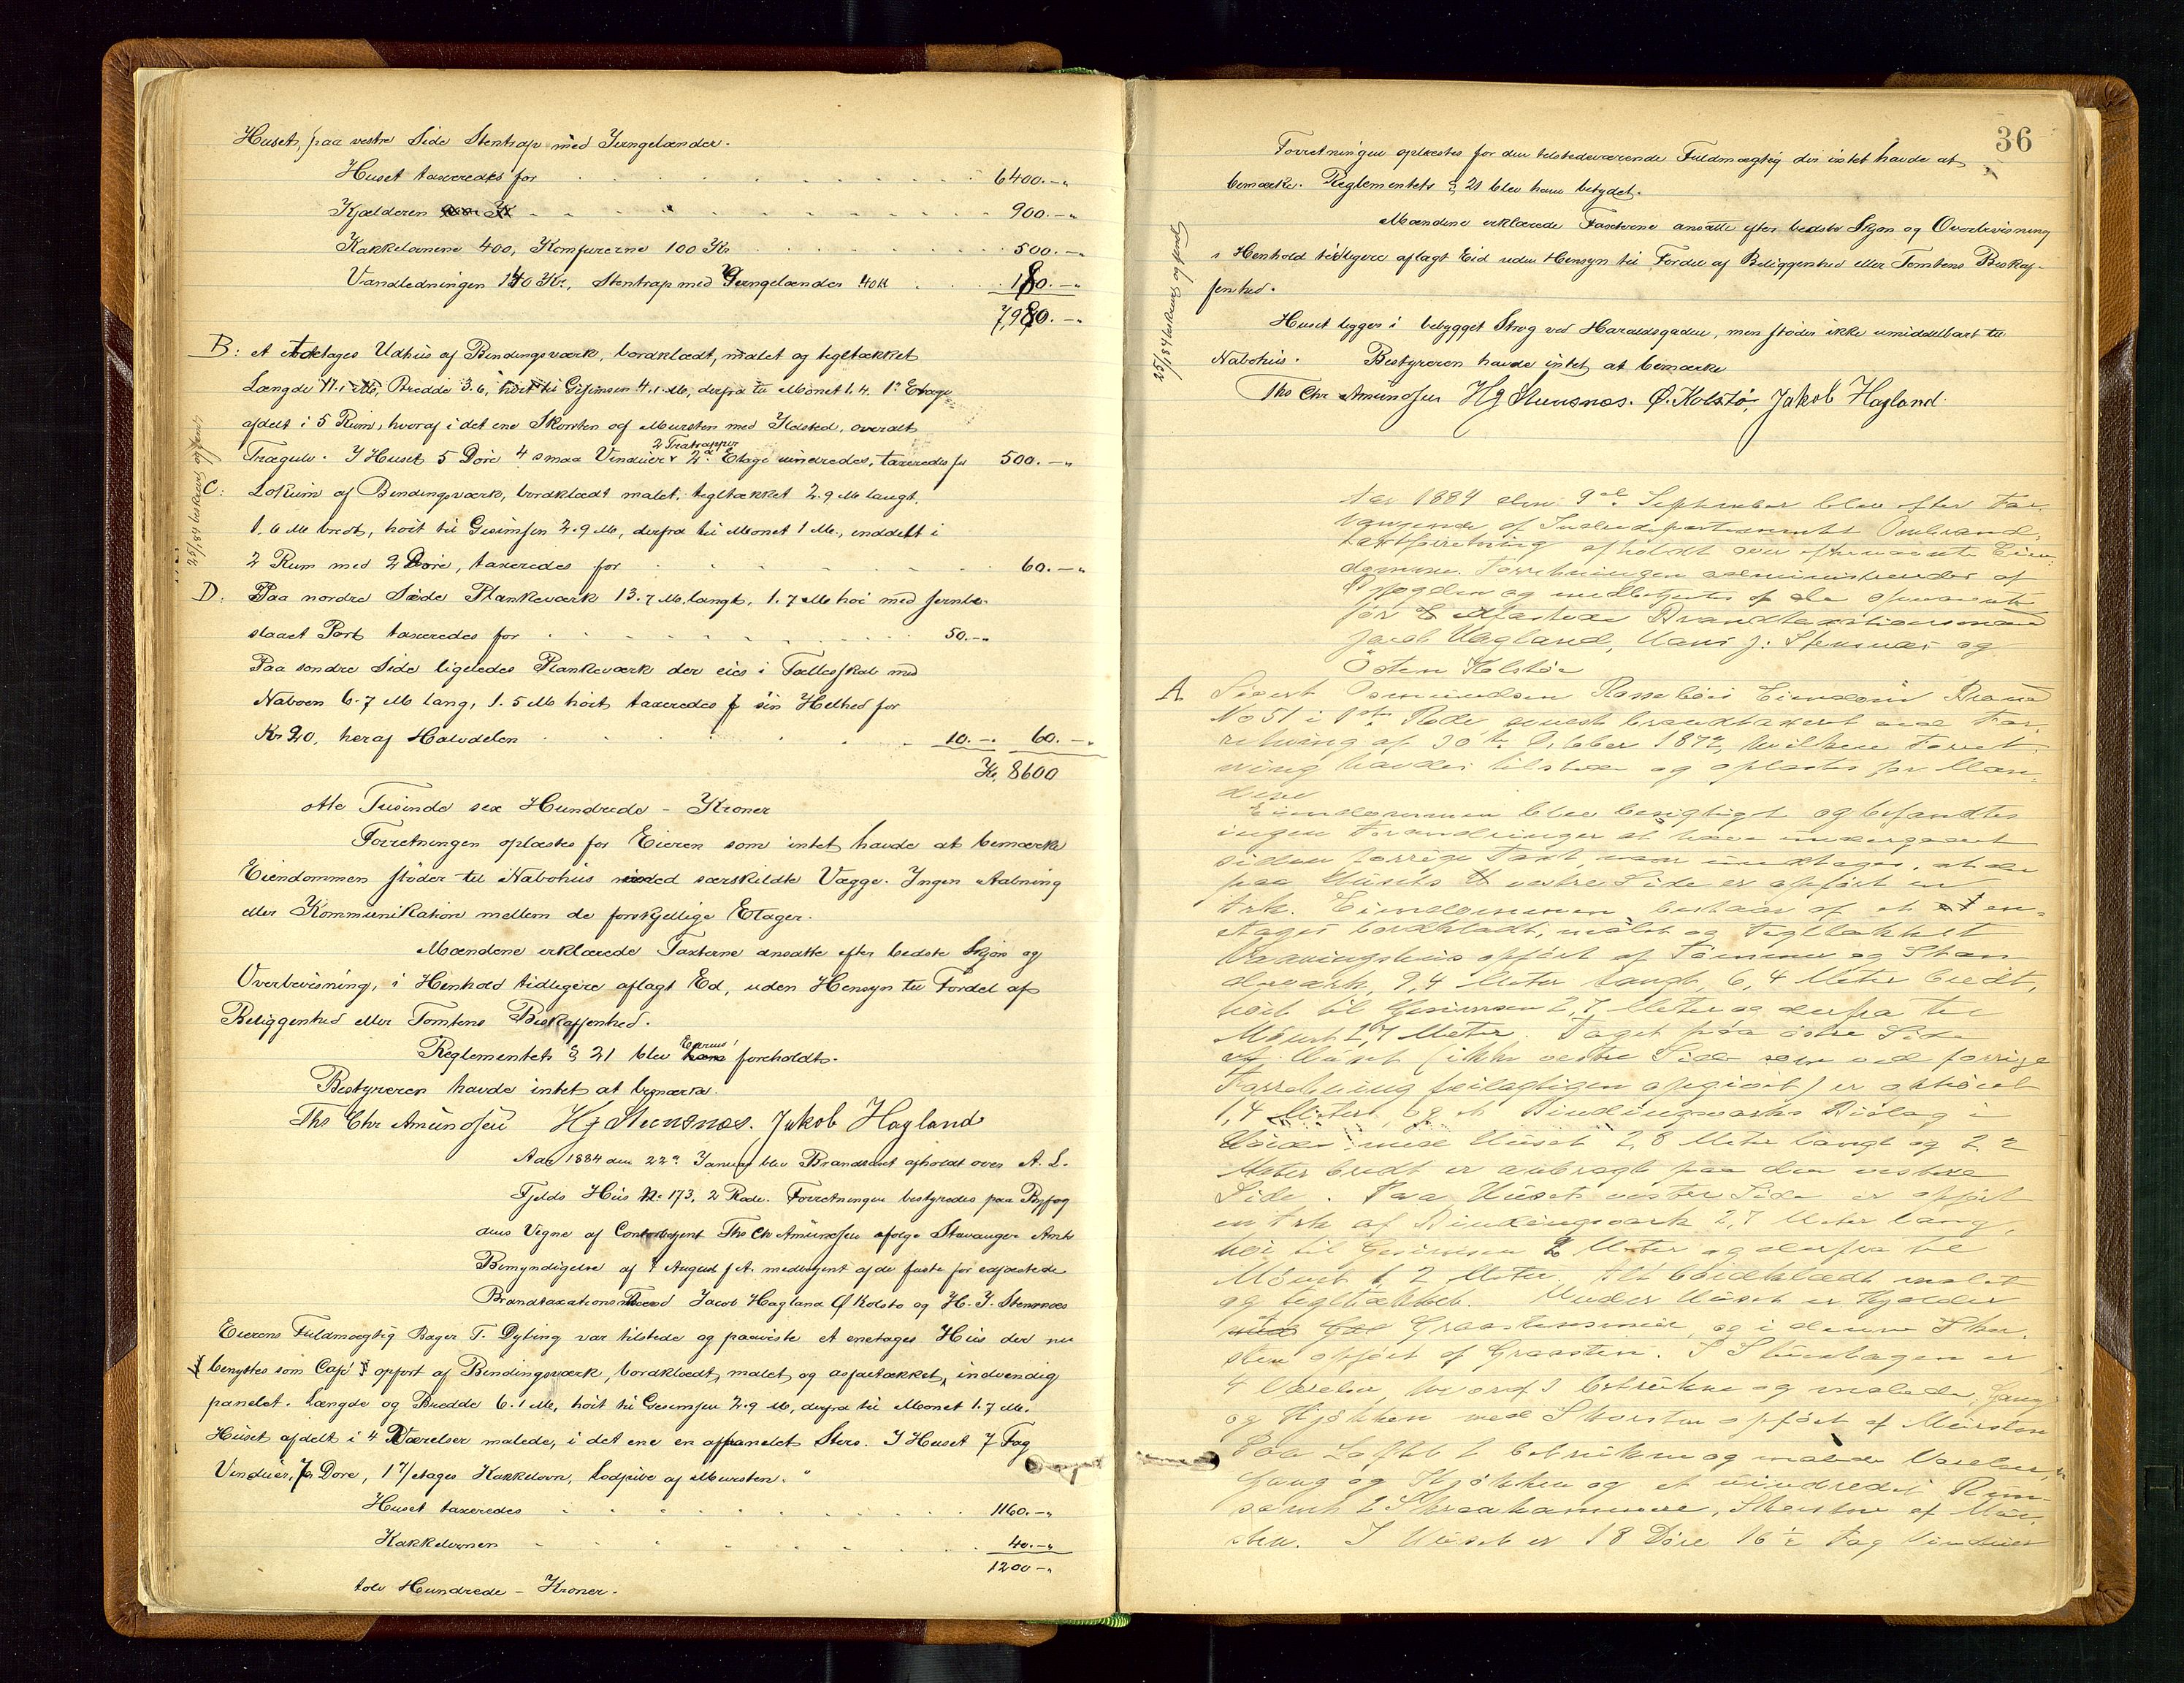 Huset, paa vestre Side Stentrap med Jerngelænder.
Huset taxeredes for 6400.-"
Kjælderen 900.-"
Kakkelovnene 400, Komfurerne 100 Kr. 500.-"
Vandledningen 140 Kr, Stentrap med Jerngelænder 40 K 180.-"
7,980.-"
B: et toetages Udhus af Bindingsværk, bordklædt, malet og tegltækket
Længde 11.1 M, Bredde 3.6, høit til Gesimsen 4.1 M, derfra til Mønet 1.4. 1ste Etage
afdelt i 5 Rum, hvoraf i det ene Skorsten af Mursten med Ildsted, overalt
Trægulv. I Huset 5 Døre 4 smaa Vinduer 2 Trætrapper 2d Etage uindredes, taxeredes for 500.-"
25/1 84 beskrevet og
C: Lokum af Bindingsværk, bordklædt malet, tegltækket 2.9 M langt,
1.6 M bredt, høit til Gesimsen 2.9 M, derfra til Mønet 1 M., inddelt i
2 Rum med 2 Døre, taxeredes for 60.-"
D. Paa nordre Side Plankeværk 13.7 M. langt, 1.7 M høi med jernbe-
slaaet Port taxeredes for 50.-"
Paa søndre Side ligeledes Plankeværk der eies i Fællesskab med
Naboen 6.7 M lang, 1.5 M høit, taxeredes i sin Helhed for
Kr 20, heraf Halvdelen 10.- 60.-"
Kr. 8600
otte Tusinde sex Hundrede - Kroner
Forretningen oplæstes for Eieren som intet havde at bemærke
Eiendommen støder til Nabohus med særskildte Vægge. Ingen Aabning
eller Kommunikation mellem de forskjellige Etager.
Mændene erklærede Taxterne ansatte efter bedste Skjøn og
Overbevisning, i Henhold tidligere aflagt Ed, uden Hensyn til Fordel af
Beliggenhed eller Tomtens Beskaffenhed.
Reglementets § 21 blev Eieren foreholdt.
Bestyreren havde intet at bemærke.
Ths Chr Amundsen Hj Stensnæs. Jakob Hagland
Aar 1884 den 22de Januar blev Brandtaxt afholdt over A. L.
Fjelds Hus No 173, 2 Rode. Forretningen bestyredes paa Byfog
dens Vegne af Contorbetjent Ths Chr Amundsen ifølge Stavanger Amts
Bemyndigelse af August f A. medbetjent af de faste for edfæstede
Brandtaxationsmænd Jacob Hagland Ø Kolstø og H. J. Stensnæs
Eierens Fuldmægtig Bager T. Dybing var tilstede og paaviste et enetages Hus der nu
benyttes som Café opført af Bindingsværk, bordklædt, malet og asfaltækket, indvendig
panelet. Længde og Bredde 6.1 M, høit til Gesimsen 2.9 M, derfra til Mønet 1.7 M.
Huset afdelt i 4 Værelser malede, i det ene en afpanelet . I Huset 7 Fag
Vinduer, 7 Døre, 1 etages Kakkelovn, Lodpibe af Mursten.
Huset taxeredes 1160.-"
Kakkelovnen 40.-"
1200-"
tolv Hundrede - Kroner.
36
Forretningen oplæstes for den tilstedeværende Fuldmægtig der intet havde at
bemærke. Reglementets § 21 blev ham betydet.
Mændene erklærede Taxterne ansatte efter bedste Skjøn og Overbevisning
i Henhold tidligere aflagt Eid uden Hensyn til Fordel af Beliggenhed eller Tomtens Beskaf-
fenhed.
25/1 84 beskrevet og
Huset ligger i bebygget Strøg ved Haraldsgaden, men støder ikke umiddelbart til
Nabohus. Bestyreren havde intet at bemærke
Ths Chr Amundsen Hj Stensnæs. Ø. Kolstø, Jakob Hagland
Aar 1884 den 9de September blev efter For
langende af Indredepartementet Ombrand,
taxtforretning afholdt over efternævnte Eien
domme. Forretningen administreredes af
Byfogden og medbetjentes af de opnævnte
før edfæstede Brandtaxtionsmænd
Jacob Hagland, Hans J. Stensnæs og
Østen Kolstøe
A. Sivert Osmundsen Rossebøes Eiendom Brand
No 51 i 1ste Rode, senest brandtaxeret ved For
retning af 30te October 1872, hvilken Forret
ning havdes tilstede og oplæstes for Mæn
dene
Eiendommen blev besigtiget og befandtes
ingen Forandringer at have undergaaet
siden forrige Taxt, naar undtages, at der
paa Husets vestre Side er opført en
Ark. Eiendommen bestaar af et en-
etages bordklædt, malet og tegltækket
Vaaningshus opført af Tømmer og Stan
derværk, 9,4 Meter langt, 6,4 Meter bredt,
høit til Gesimsen 2,7 Meter og derfra til
Mønet 2,7 Meter. Taget paa østre Side
af Huset (ikke vestre Side som ved forrige
Forretning feilagtigen opgivet) er ophøiet
1,4 Meter, og et Bindingsværks Bislag i
Høide med Huset 2,8 Meter langt og 2,2
Meter bredt er anbragt paa den vestre
Side. Paa Husets vestre Side er opført
en Ark af Bindingsværk 2,7 Meter lang,
høi til Gesimsen 2 Meter og derfra til
Mønet 1,2 Meter. Alt bordklædt malet
og tegltækket. Under Huset er Kjælder
Graastensmur, og i denne Skor
sten opført af Graasten. I Stueetagen er
4 Værelser, hvoraf 3 betrukne og malede, Gang
og Kjøkken med Skorsten opført af Mursten
Paa Loftet 2 betrukne og malede Værelser,
Gang og Kjøkken og et uindredet Rum
samt 2 Skraakammere, Skorsten af Mur
sten. I Huset er 18 Døre 16 ½ Fag Vinduer